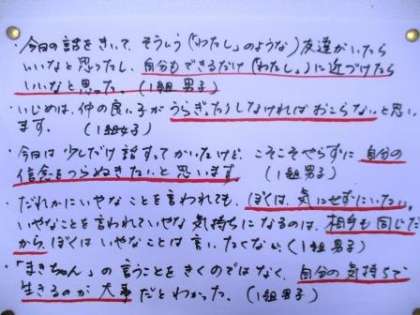 ・今日の話をきいて、そういう(「わたし」のような)友達がいたら
いいなと思ったし、自分もできるだけ(「わたし」)に近づけたら
いいなと思った。(1組男子)
・いじめは、仲の良い子がうらぎったりしなければおこらないと思い
ます。(1組女子)
・今日は少しだけ話すってかいたけど、こそこそやらずに自分の
信念をつらぬきたいと思います(1組男子)
・だれかにいやなことを言われても、ぼくは、気にせずにいたい。
いやなことを言われていやな気持ちになるのは、相手も同じだ
から、ぼくはいやなことは言いたくない。(1組男子)
・「まきちゃん」の言うことをきくのではなく、自分の気持ちで
生きるのが大事だとわかった。(1組男子)